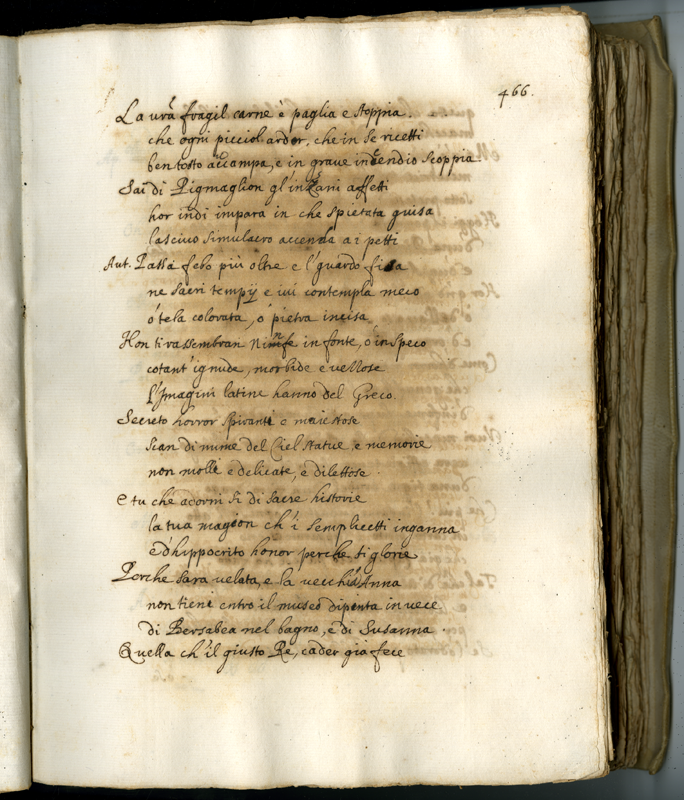 466.
La vrã fragil carne è paglia e stoppia.
che ogni picciol ardor, che in se ricetti
ben tosto auampa, e in graue incendio scoppia
Sai di Pigmaglion gl'insani affetti
hor indi impara in che spietata guisa
lasciuo simulacro accenda a i petti
Aut. Passa febo più oltre e l'guardo fisa
ne sacri tempij e iui contempla meco
ó tela colorata, ó pietra incisa
Non ti rassembran Ninfe in fonte, ó in speco
cotant' ignude, morbide e vezzose
l'Imagini latine hanno del Greco.
Secreto horror spiranti e maiestose
sian di nume del Ciel statue, e memorie
non molli e delicate, e dilettose.
E tu che adorni si di sacre historie
la tua magion ch'i semplicetti inganna
e d'hippocrito honor perche ti glorie
Perche Sara uelata, e la vecchia Anna
non tieni entro il museo dipenta in uece
di Bersabea nel bagno, e di Susanna.
Quella ch'il giusto Re, cader gia fece